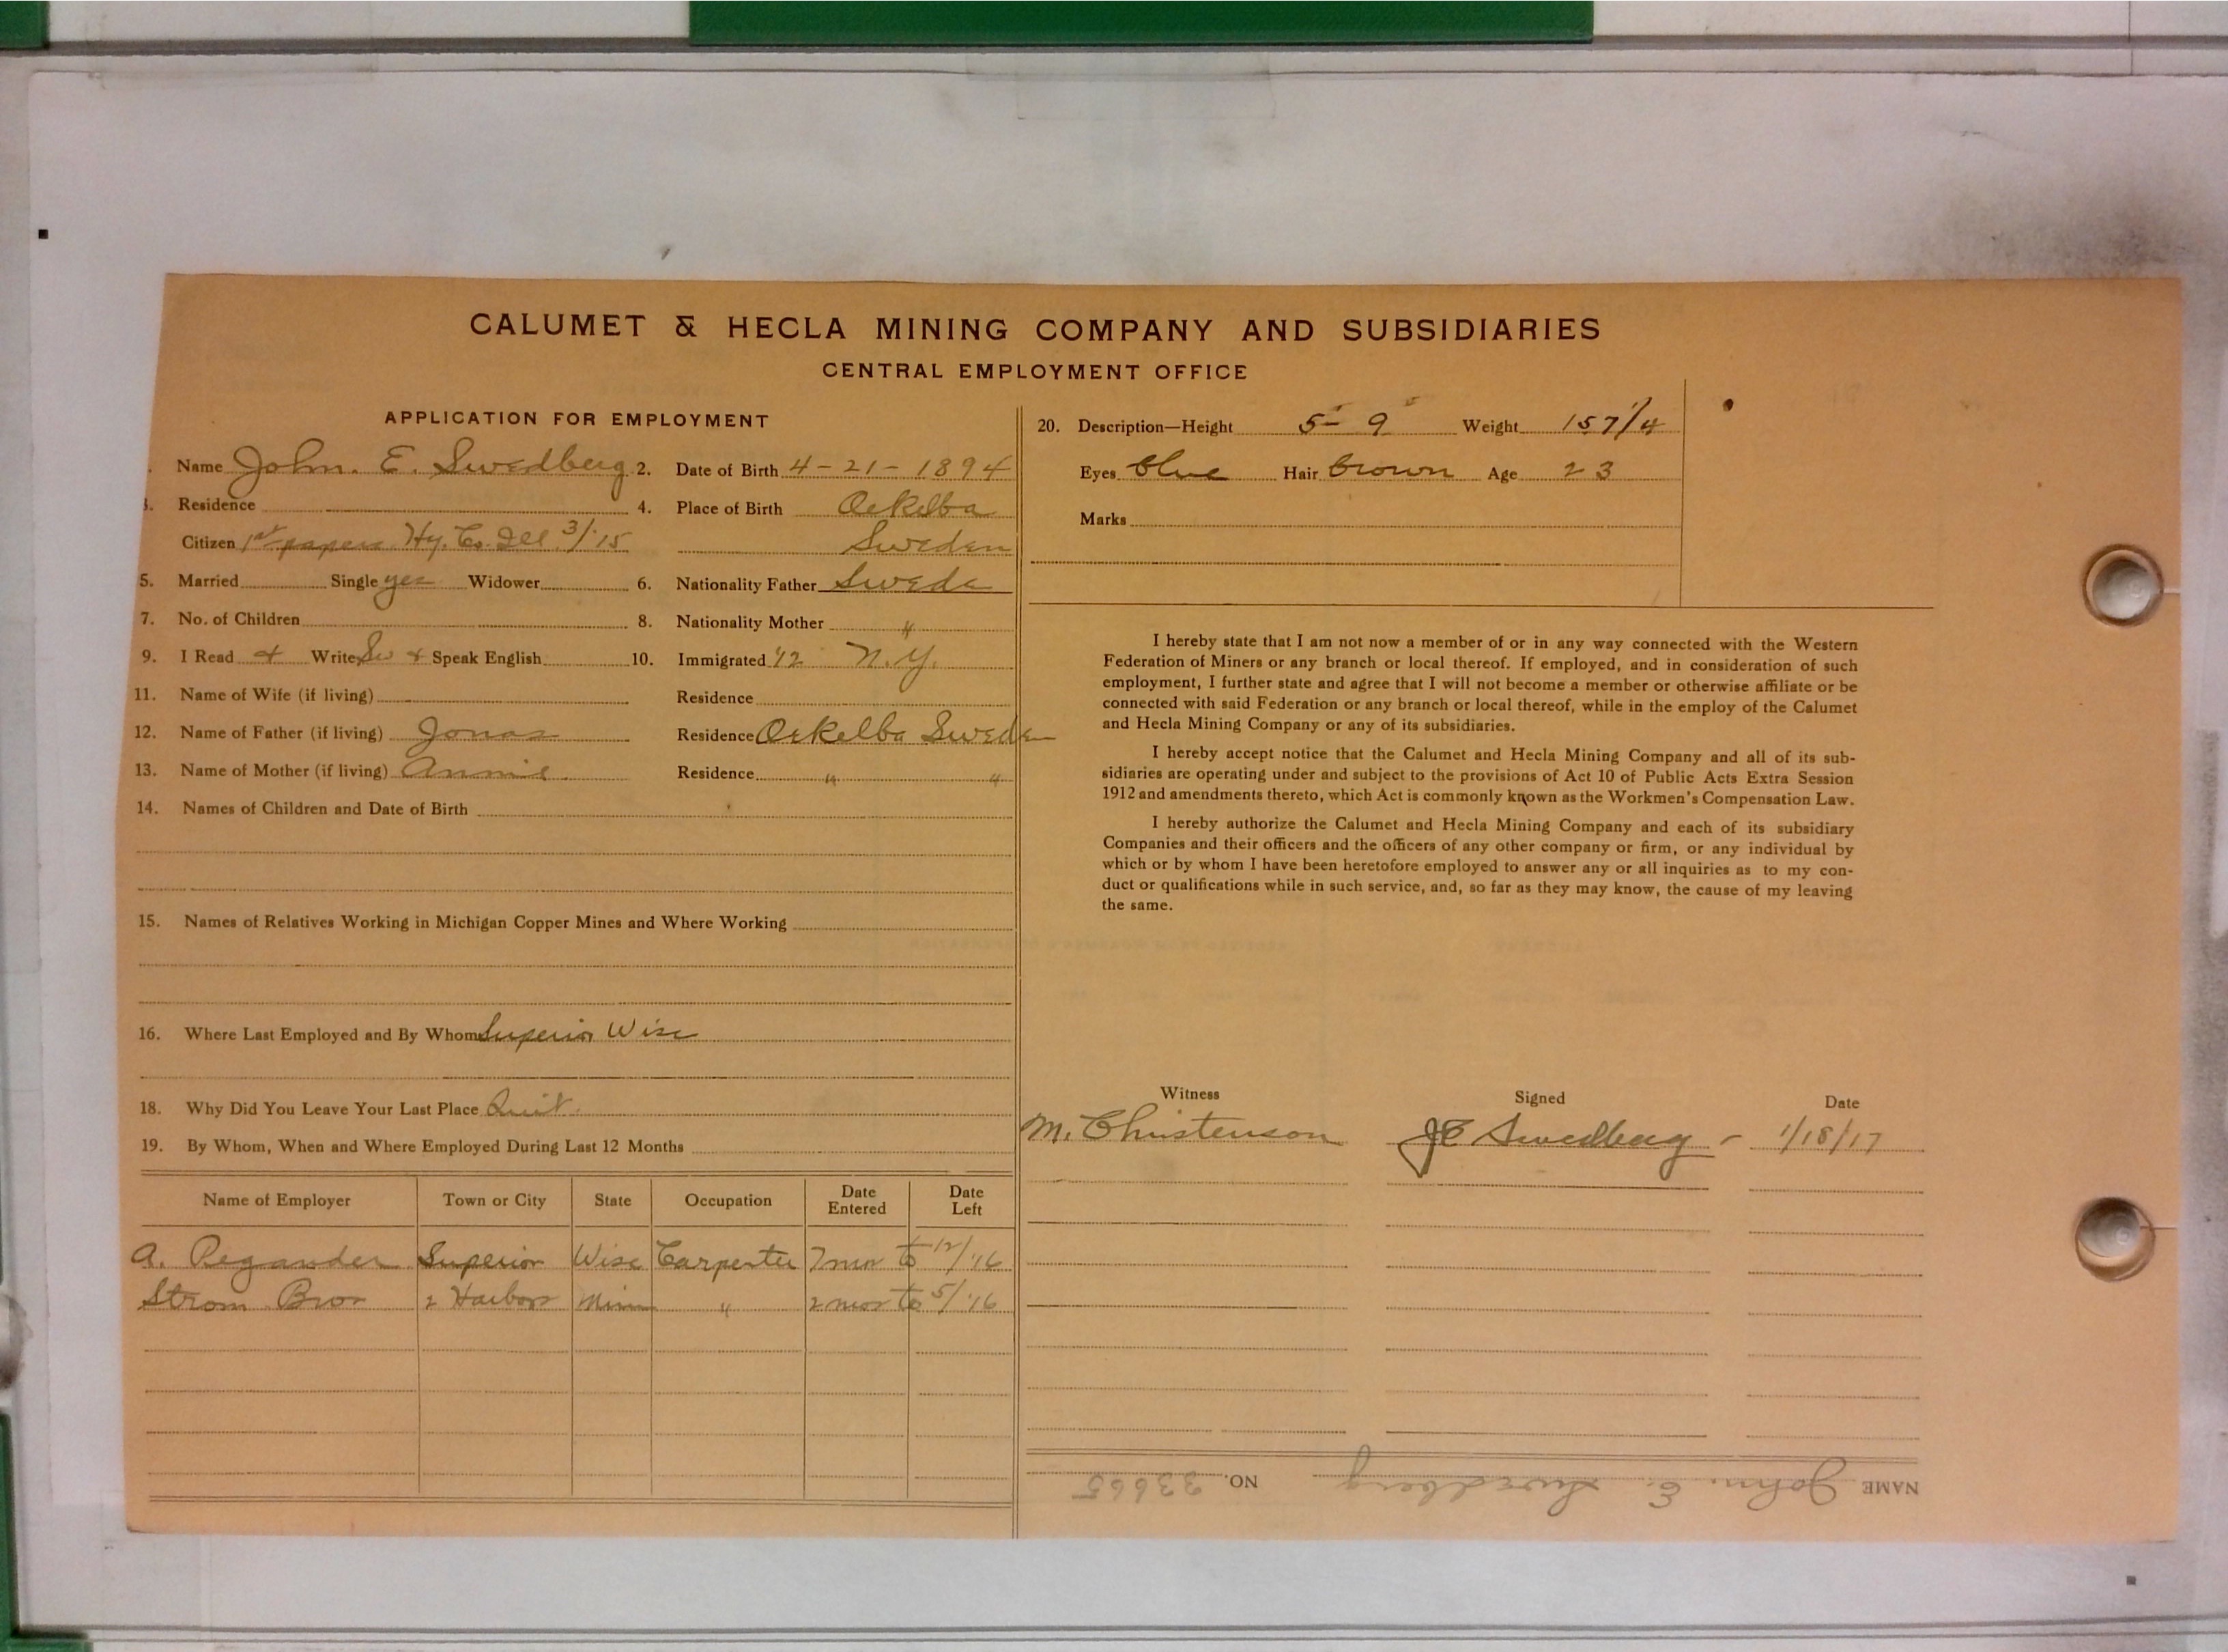 CALUMET & HECLA MINING COMPANY AND SUBSIDIARIES
CENTRAL EMPLOYMENT OFFICE
APPLICATION FOR EMPLOYMENT
Name John. E. Swedberg 2. Date of Birth 4-21-1894
3. Residence 4. Place of Birth Ockelba
Citizen 1st papers Hy. Co. Ill 3/'15 Sweden
5. Married Single yes Widower 6. Nationality Father Swede
7. No. of Children 8. Nationality Mother "
9. I Read & Write Sw & Speak English 10. Immigrated '12 N.Y.
11. Name of Wife (if living) Residence
12. Name of Father (if living) Jonas Residence Ockelba Sweden
13. Name of Mother (if living) Annie Residence " "
14. Names of Children and Date of Birth
15. Names of Relatives Working in Michigan Copper Mines and Where Working
16. Where Last Employed and By Whom Superior Wisc
18. Why Did You Leave Your Last Place Quit
19. By Whom, When and Where Employed During Last 12 Months
Name of Employer Town or City State Occupation Date Entered Date Left
A. Regander Superior Wisc Carpenter 7 mon to 12/'16
Strom Bros 2 Harbors Minn " 2 mos to 5/'16
20. Description—Height 5' 9" Weight 157 1/4
Eyes blue Hair brown Age 23
Marks
I hereby state that I am not now a member of or in any way connected with the Western
Federation of Miners or any branch or local thereof. If employed, and in consideration of such
employment, I further state and agree that I will not become a member or otherwise affiliate or be
connected with said Federation or any branch or local thereof, while in the employ of the Calumet
and Hecla Mining Company or any of its subsidiaries.
I hereby accept notice that the Calumet and Hecla Mining Company and all of its sub-
sidiaries are operating under and subject to the provisions of Act 10 of Public Acts Extra Session
1912 and amendments thereto, which Act is commonly known as the Workmen's Compensation Law.
I hereby authorize the Calumet and Hecla Mining Company and each of its subsidiary
Companies and their officers and the officers of any other company or firm, or any individual by
which or by whom I have been heretofore employed to answer any or all inquiries as to my con-
duct or qualifications while in such service, and, so far as they may know, the cause of my leaving
the same.
Witness Signed Date
M. Christenson JE Swedberg - 1/18/17
NAME John. E. Swedberg NO. 33665